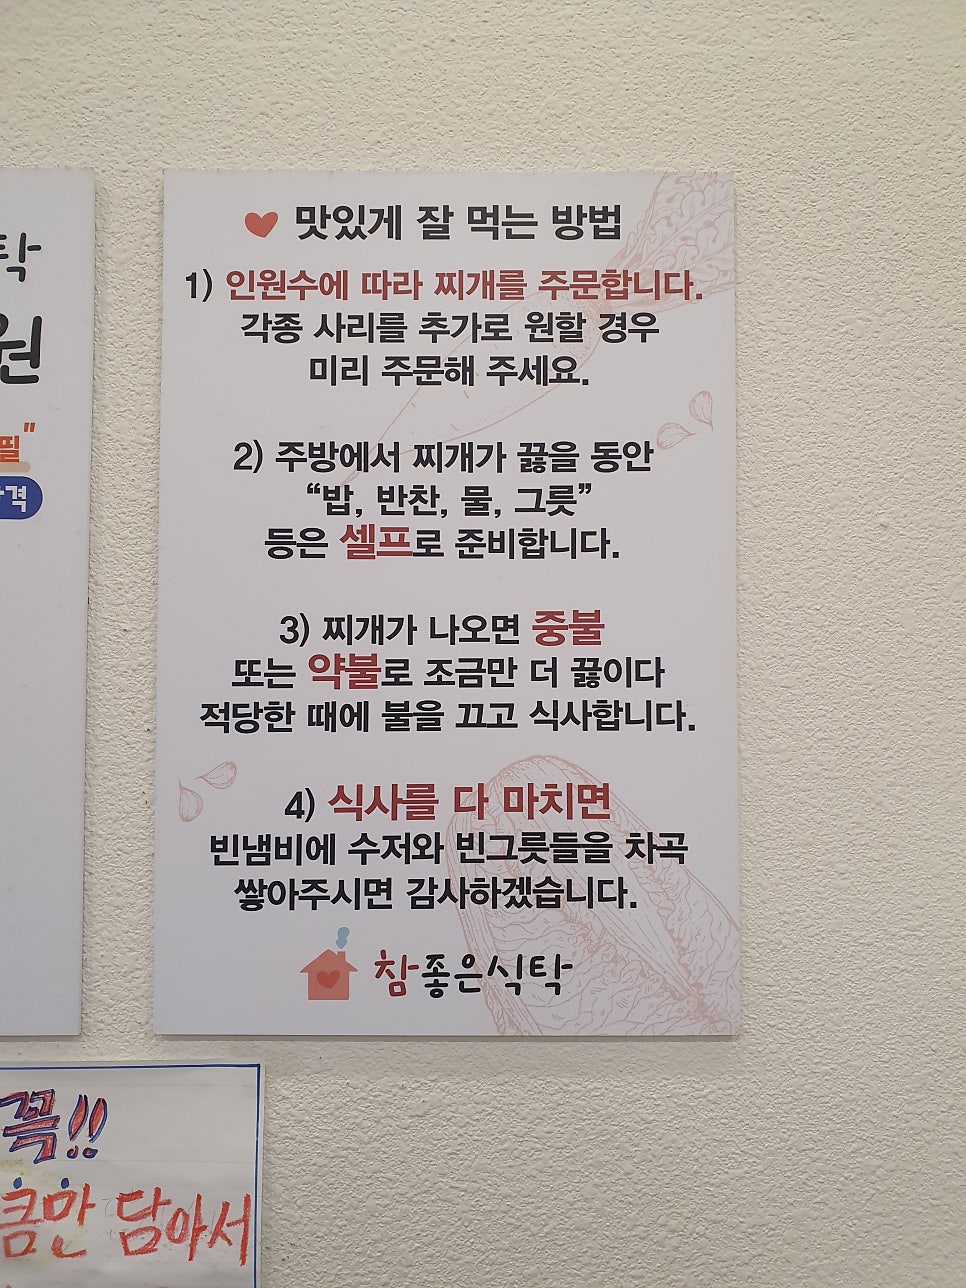 탁
원
필"
격
맛있게 잘 먹는 방법
1) 인원수에 따라 찌개를 주문합니다.
각종 사리를 추가로 원할 경우
미리 주문해 주세요.
2) 주방에서 찌개가 끓을 동안
“밥, 반찬, 물, 그릇”
등은 셀프로 준비합니다.
3) 찌개가 나오면 중불
또는 약불로 조금만 더 끓이다
적당한 때에 불을 끄고 식사합니다.
4) 식사를 다 마치면
빈냄비에 수저와 빈그릇들을 차곡
쌓아주시면 감사하겠습니다.
참좋은식탁
꼭!!
큼만 담아서